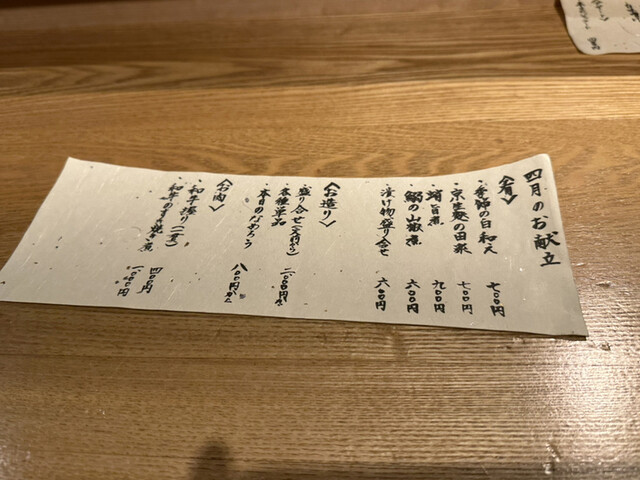 四月のお献立
〈肴〉
・季節の白和え 七〇〇円
・京生麩の田楽 七〇〇円
・蛸旨煮 九〇〇円
・鰯の山椒煮 六〇〇円
・漬け物盛り合せ 六〇〇円
〈お造り〉
・盛り合せ 二〇〇〇円から
・各種単品
・本日のなめろう 八〇〇円から
〈お肉〉
・和牛握り(二貫)
・和牛のすき焼き煮 四〇〇円